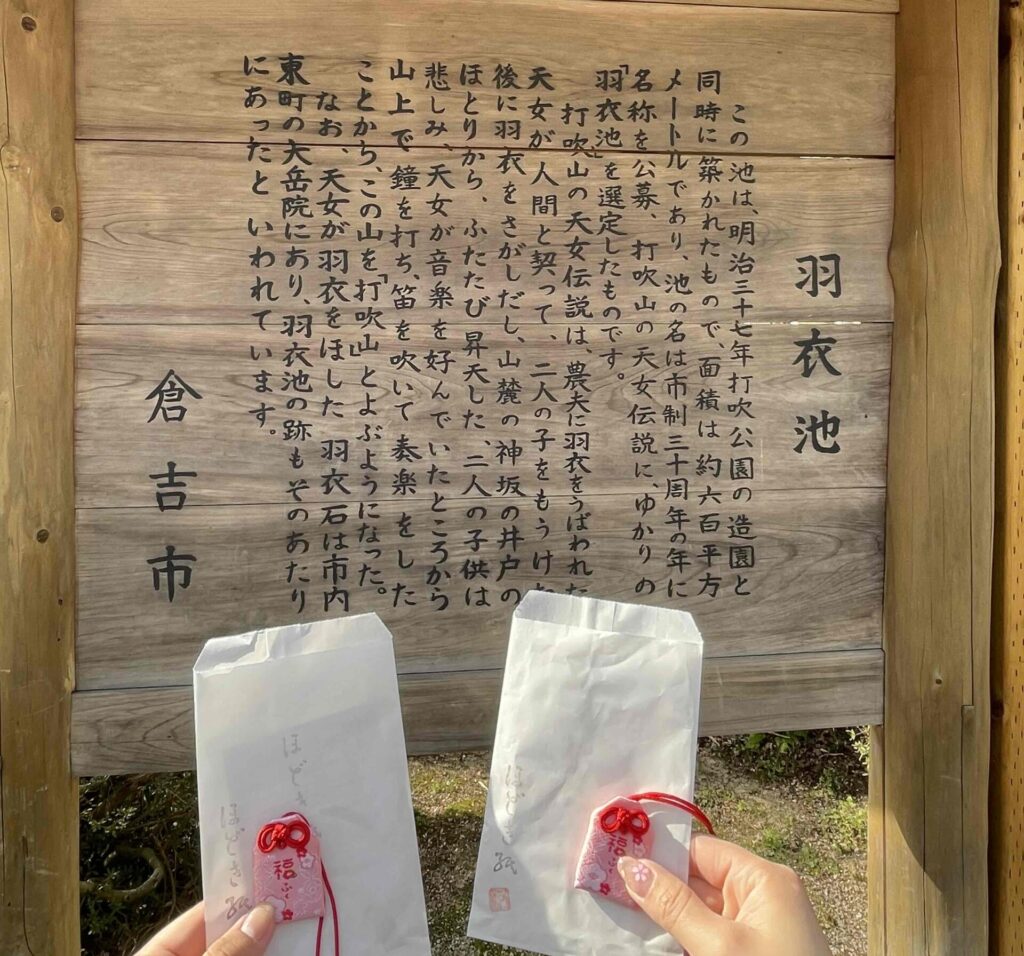 羽衣池
この池は、明治三十七年打吹公園の造園と
同時に築かれたもので、面積は約六百平方
メートルであり、池の名は市制三十周年の年に
名称を公募、打吹山の天女伝説に、ゆかりの
「羽衣池」を選定したものです。
打吹山の天女伝説は、農夫に羽衣をうばわれた
天女が人間と契って、二人の子をもうけた
後に羽衣をさがしだし、山麓の神坂の井戸の
ほとりから、ふたたび昇天した、二人の子供は
悲しみ、天女が音楽を好んでいたところから
山上で鐘を打ち、笛を吹いて奏楽をした
ことから、この山を「打吹山」とよぶようになった。
なお、天女が羽衣をほした羽衣石は市内
東町の大岳院にあり、羽衣池の跡もそのあたり
にあったといわれています。
倉吉市
ほどき
ほどき紙
福
ふく
ほどき紙
福
ふく